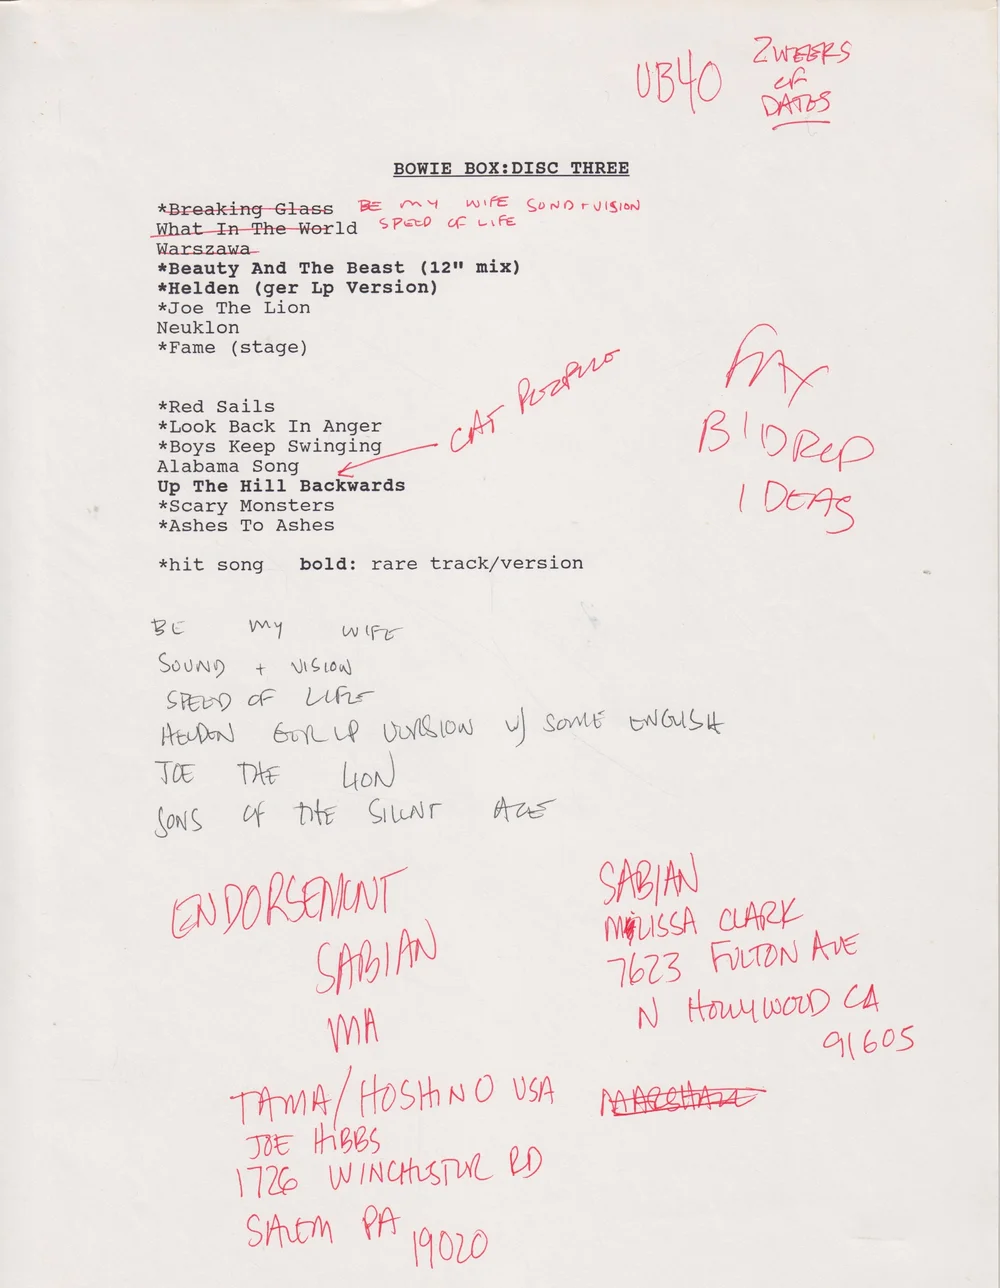 UB40
2 WEEKS
OF
DATES
BOWIE BOX:DISC THREE
*Breaking Glass BE MY WIFE SOND + VISION
What In The World SPEED OF LIFE
Warszawa
*Beauty And The Beast (12" mix)
*Helden (ger Lp Version)
*Joe The Lion
Neuklon
*Fame (stage)
*Red Sails
*Look Back In Anger
*Boys Keep Swinging
CAT PEOPLE
Alabama Song
Up The Hill Backwards
*Scary Monsters
*Ashes To Ashes
FAX
B'DRED
IDEAS
*hit song bold: rare track/version
BE MY WIFE
SOUND + VISION
SPEED OF LIFE
HELDEN GER LP VERSION W/ SOME ENGLISH
JOE THE LION
SONS OF THE SILENT AGE
ENDORSEMENT
SABIAN
MA
SABIAN
MELISSA CLARK
7623 FULTON AVE
N HOLLYWOOD CA
91605
TAMA/HOSHINO USA
JOE HIBBS
1726 WINCHESTER RD
SALEM PA
19020
MARSHALL